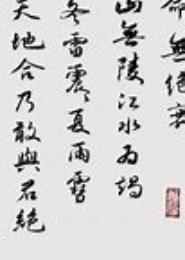 命無絕衰
山無陵江水為竭
冬雷震震夏雨雪
天地合乃敢與君絕